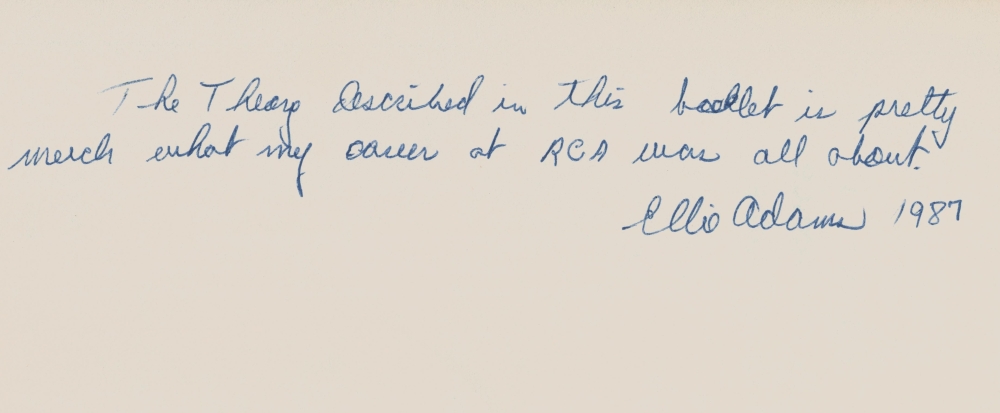 The Theory described in this booklet is pretty
much what my career at RCA was all about.
Ellis Adams 1987